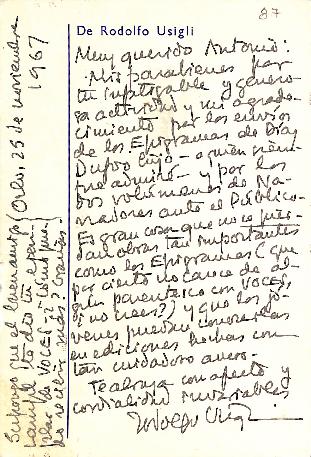 87
De Rodolfo Usigli
Muy querido Antonio:
Mis parabienes por
tu infatigable y genero-
sa actividad y mi agrade-
cimiento por los envíos
de los Epigramas de Díaz
Dufoo hijo - a quien siem-
pre admiré - y por los
dos volúmenes de Na-
rradores ante el Público.
Es gran cosa que no se pier-
dan obras tan importantes
como los Epigramas (que
por cierto no carece de al-
gún parentesco con VOCES,
¿no crees?) y que los jó-
venes puedan conocerlas
en ediciones hechas con
tan cuidadoso amor.
Te abraza con afecto y
cordialidad invariables
Rodolfo Usigli
(Oslo, 25 de noviembre
1967
Supongo que el
ejem-
plar de VOCES
más? Gracias.